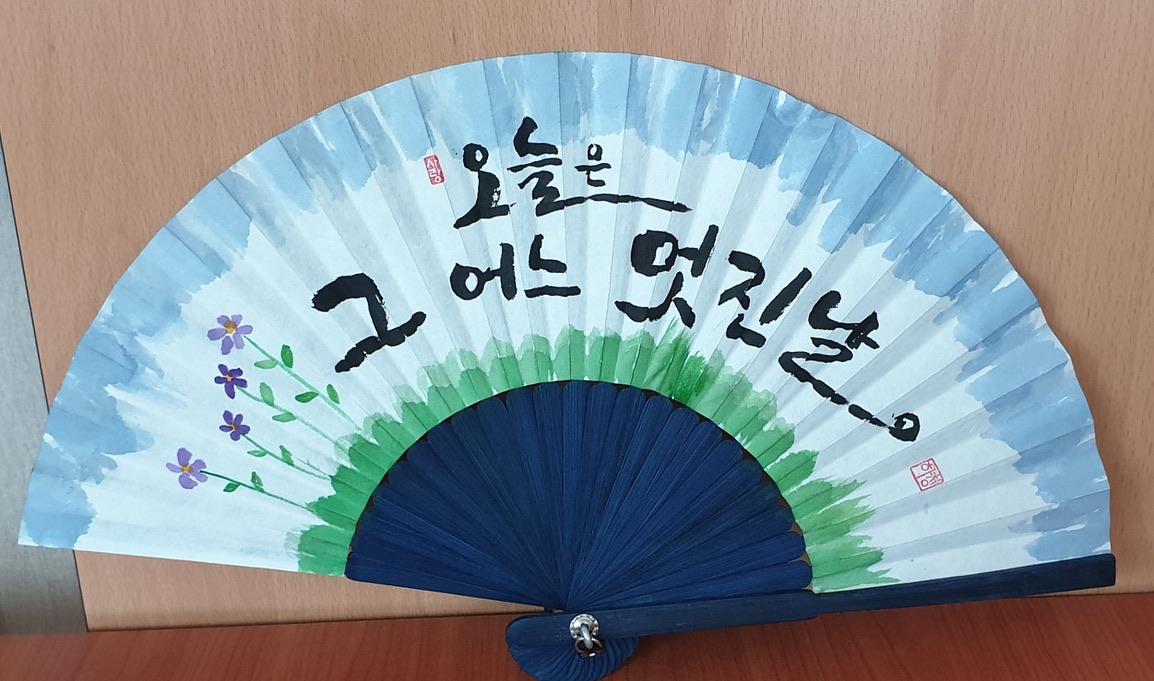 사랑
오늘은
그 어느 멋진 날